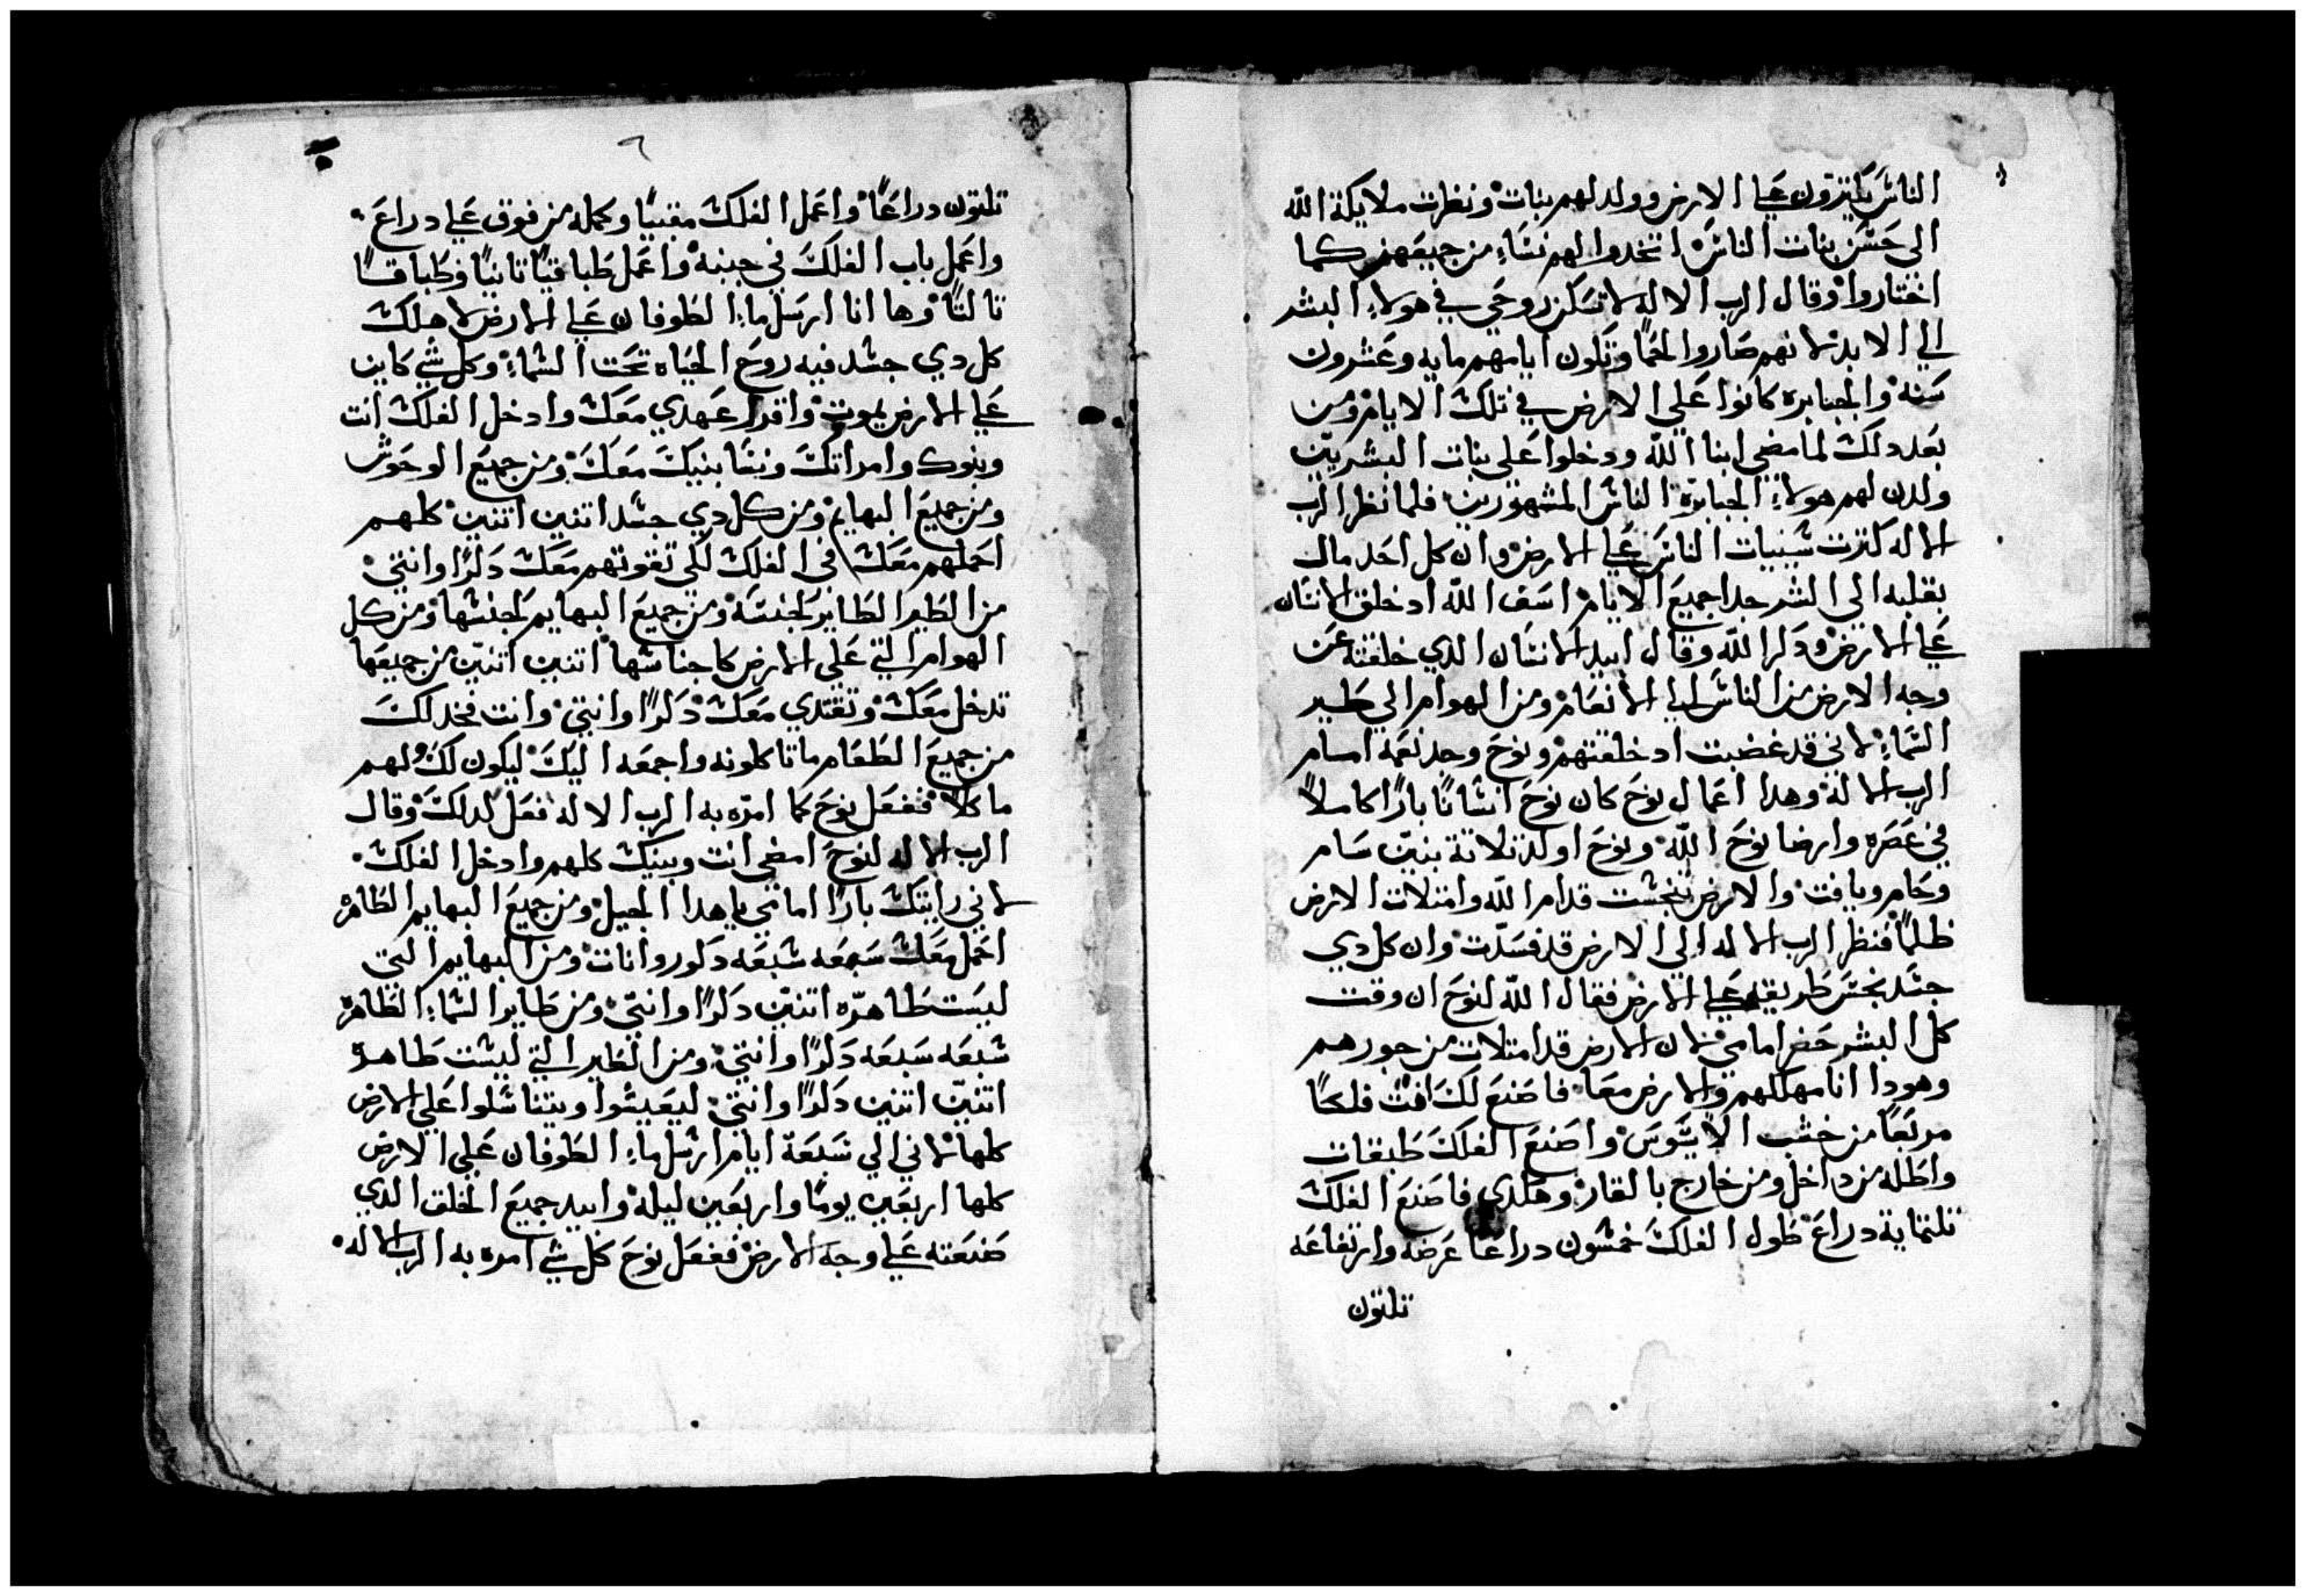 الناس يكترون علي الارض وولد لهم بنات ونظرت ملايكة الله
الى حسن بنات الناس اتخدوا لهم نساء من جميعهن كما
اختاروا وقال الرب الاله لا تسكن روحي في هولاء البشر
الي الابد لانهم صاروا لحمًا وتكون ايامهم مايه وعشرون
سنه والجبابره كانوا علي الارض في تلك الايام ومن
بعد دلك لما مضي ابنا الله ودخلوا على بنات البشريين
ولدن لهم هولاء الجبابرة الناس المشهورين فلما نظر الرب
الاله كترت سييات الناس علي الارض وان كل احد مال
بقلبه الى الشر جدا جميع الايام اسف الله اد خلق الانسان
علي الارض ودكر الله وقال ابيد الانسان الدي خلقته عن
وجه الارض من الناس الي الانعام ومن الهوام الي طير
السماء لاني قد غضبت اد خلقتهم ونوح وجد نعمه امام
الرب الاله وهدا اعمال نوح كان نوح انسانًا بارًا كاملاً
في عصره وارضا نوح الله ونوح اولد تلاتة بنين سام
وحام ويافت والارض تنجست قدام الله وامتلات الارض
ظلمًا فنظر الرب الاله الي الارض قد فسدت وان كل دي
جسد نجس طريقه علي الارض فقال الله لنوح ان وقت
كل البشر حضر امامي لان الارض قد امتلات من جورهم
وهودا انا مهلكهم والارض معا فاصنع لك انت فلكًا
مربعًا من خشب الايبوس واصنع الفلك طبقات
واطله من داخل ومن خارج بالقار وهكدي فاصنع الفلك
تلتماية دراع طول الفلك خمسون دراعًا عرضه وارتفاعه
تلتون
٦
تلتون دراعًا واعمل الفلك مقببًا وكمله من فوق علي دراع
واعمل باب الفلك في جنبه واعمل طباقيًا تانيًا وطباقًا
تالتًا وها انا ارسل ماء الطوفان علي الارض لاهلك
كل دي جسد فيه روح الحياه تحت السماء وكل شي كاين
علي الارض يموت واقرر عهدي معك وادخل الفلك انت
وبنوك وامراتك ونسا بنيك معك ومن جميع الوحوش
ومن جميع البهايم ومن كل دي جسد اتنين اتنين كلهم
احملهم معك في الفلك لكي تقوتهم معك دكرًا وانتي
من الطير الطاير لجنسه ومن جميع البهايم لجنسها ومن كل
الهوام التي علي الارض كاجناسها اتنين اتنين من جميعها
تدخل معك وتغتدي معك دكرًا وانتي وانت فخد لك
من جميع الطعام ما تاكلونه واجمعه اليك ليكون لك ولهم
ماكلاً ففعل نوح كما امره به الرب الاله فعل كدلك وقال
الرب الاله لنوح امضى انت وبنيك كلهم وادخل الفلك
لاني رايتك بارًا امامي في هدا الجيل ومن جميع البهايم الطاهره
احمل معك سبعه سبعه دكور وانات ومن البهايم التي
ليست طاهره اتنين دكرًا وانتي ومن طاير السماء الطاهره
سبعه سبعه دكرًا وانتي ومن الطاير التي ليست طاهره
اتنين اتنين دكرًا وانتي ليعيشوا ويتناسلوا علي الارض
كلها لاني الي سبعة ايام ارسل ماء الطوفان علي الارض
كلها اربعين يومًا واربعين ليله وابيد جميع الخلق الدي
صنعته علي وجه الارض ففعل نوح كل شي امره به الرب الاله